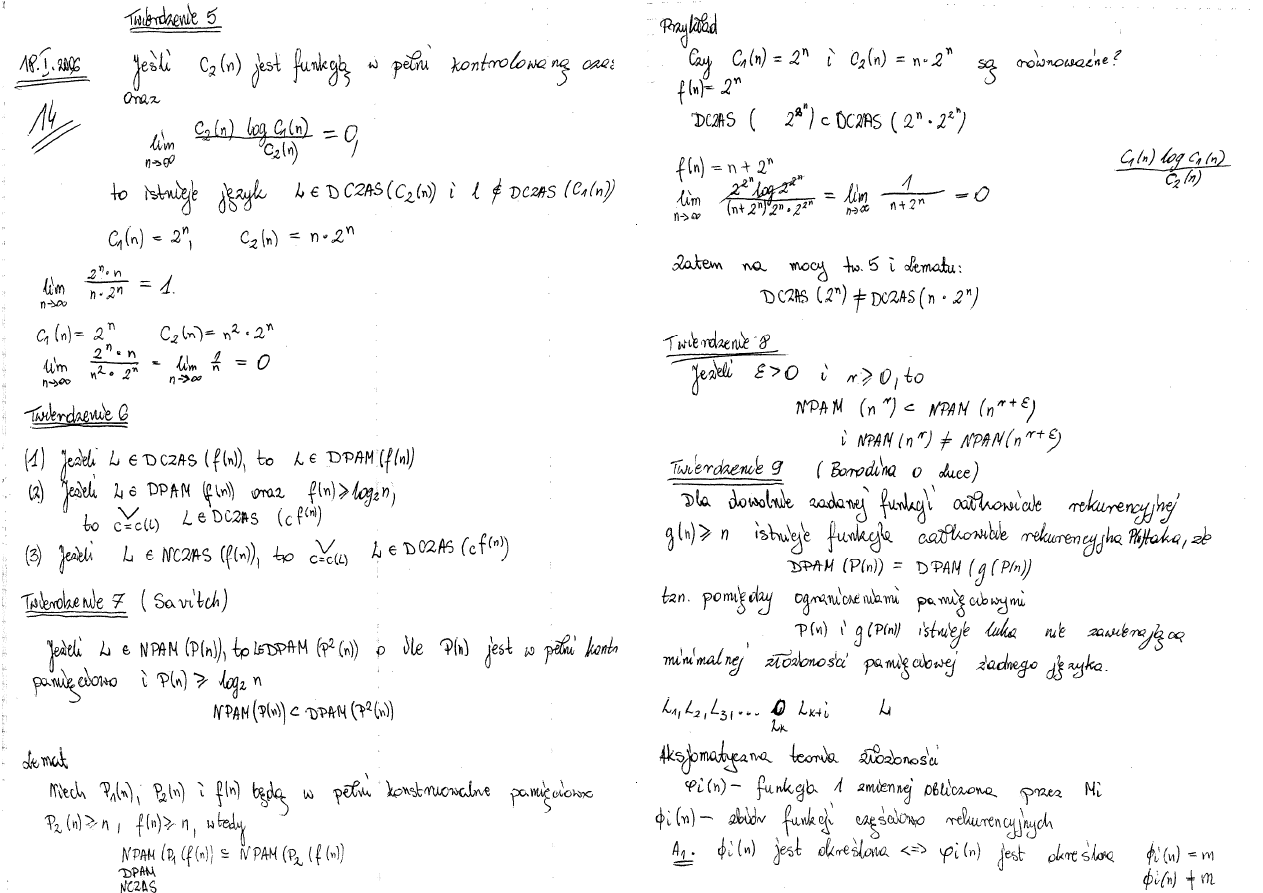 Twierdzenie 5
18.I.2006
14
Jeśli C₂(n) jest funkcją w pełni kontrolowaną czas
oraz
lim n→∞ C₂(n) log C₁(n) / C₂(n) = 0,
to istnieje język L ∈ DCZAS(C₂(n)) i L ∉ DCZAS(C₁(n))
C₁(n) = 2ⁿ, C₂(n) = n·2ⁿ
lim n→∞ 2ⁿ·n / n·2ⁿ = 1.
C₁(n) = 2ⁿ C₂(n) = n²·2ⁿ
lim n→∞ 2ⁿ·n / n²·2ⁿ = lim n→∞ 1/n = 0
Twierdzenie 6
(1) Jeżeli L ∈ DCZAS(f(n)), to L ∈ DPAM(f(n))
(2) Jeżeli L ∈ DPAM (f(n)) oraz f(n) ≥ log₂n,
to ⋁ c=c(L) L ∈ DCZAS (c^f(n))
(3) Jeżeli L ∈ NCZAS (f(n)), to ⋁ c=c(L) L ∈ DCZAS (c^f(n))
Twierdzenie 7 (Savitch)
Jeżeli L ∈ NPAM(P(n)), to L∈DPAM(P²(n)) o ile P(n) jest w pełni kontr
pamięciowo i P(n) ≥ log₂ n
NPAM(P(n)) ⊂ DPAM(P²(n))
Lemat
Niech P₁(n), P₂(n) i f(n) będą w pełni konstruowalne pamięciowo
P₂(n) ≥ n, f(n) ≥ n, wtedy
NPAM(P₁(f(n)) ⊆ NPAM(P₂(f(n))
DPAM
NCZAS
Przykład
Czy C₁(n) = 2ⁿ i C₂(n) = n·2ⁿ są równoważne?
f(n) = 2ⁿ
DCZAS ( 2^2ⁿ) ⊂ DCZAS (2ⁿ·2^2ⁿ)
f(n) = n + 2ⁿ
C₁(n) log C₁(n) / C₂(n)
lim n→∞ 2^2ⁿ log 2^2ⁿ / (n+2ⁿ)·2ⁿ·2^2ⁿ = lim n→∞ 1 / n+2ⁿ = 0
Zatem na mocy tw. 5 i Lematu:
DCZAS (2ⁿ) ≠ DCZAS(n·2ⁿ)
Twierdzenie 8
Jeżeli ε > 0 i r ≥ 0, to
NPAM (n^r) ⊂ NPAM (n^r+ε)
i NPAM(n^r) ≠ NPAM(n^r+ε)
Twierdzenie 9 (Borodina o luce)
Dla dowolnie zadanej funkcji całkowicie rekurencyjnej
g(n) ≥ n istnieje funkcja całkowicie rekurencyjna P(n) taka, że
DPAM (P(n)) = DPAM (g(P(n))
tzn. pomiędzy ograniczeniami pamięciowymi
P(n) i g(P(n)) istnieje luka nie zawierająca
minimalnej złożoności pamięciowej żadnego języka.
L₁, L₂, L₃, ... Lk Lk+i L
Aksjomatyczna teoria złożoności
φi(n) – funkcja 1 zmiennej obliczona przez Mi
ϕi(n) – zbiór funkcji częściowo rekurencyjnych
A₁. ϕi(n) jest określona <=> φi(n) jest określona
ϕi(n) = m
ϕi(n) ≠ m